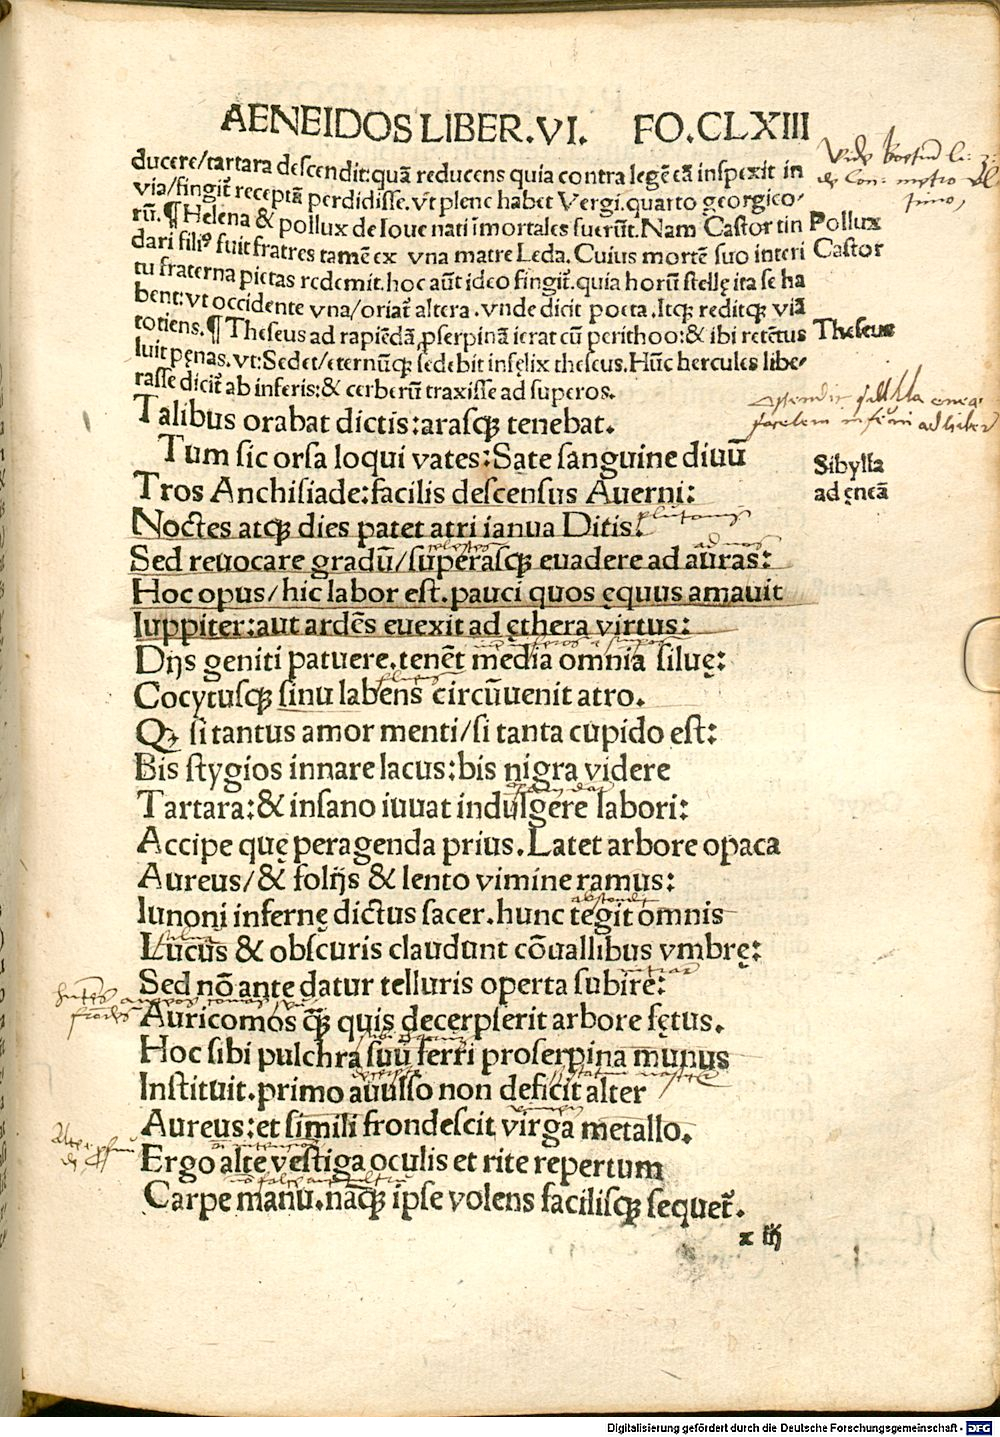 AENEIDOS LIBER.VI. FO.CLXIII
ducere/tartara descendit:quā reducens quia contra legē eā inspexit in
via/fingit̄ receptā perdidisse. vt plene habet Vergi. quarto georgico-
rū. ¶ Helena & pollux de Ioue nati īmortales fuerūt. Nam Castor tin
dari filiꝰ fuit fratres tamē ex vna matre Leda. Cuius mortē suo interi
tu fraterna pietas redemit. hoc aūt ideo fingit̄. quia horū stellę ita se ha
bent: vt occidente vna/oriat̄ altera. vnde dicit poeta. Itqꝫ reditqꝫ viā
totiens. ¶ Theseus ad rapiēdā ꝓserpinā ierat cū perithoo: & ibi retētus
luit pęnas. vt: Sedet/eternūqꝫ sedebit infęlix theseus. Hūc hercules libe-
rasse dicit̄ ab inferis: & cerberū traxisse ad superos.
Pollux
Castor
Theseus
Talibus orabat dictis: arasqꝫ tenebat.
Tum sic orsa loqui vates: Sate sanguine diuū
Tros Anchisiade: facilis descensus Auerni:
Sibylla
ad ęneā
Noctes atqꝫ dies patet atri ianua Ditis.
plutonis
Sed reuocare gradū/superasqꝫ euadere ad auras:
ad nos
Hoc opus/hic labor est. pauci quos ęquus amauit
Iuppiter: aut ardēs euexit ad ęthera virtus:
Dijs geniti patuere. tenēt media omnia siluę:
Cocytusqꝫ sinu labens circūuenit atro.
Qꝫ si tantus amor menti/si tanta cupido est:
Bis stygios innare lacus: bis nigra videre
Tartara: & insano iuuat indulgere labori:
Accipe quę peragenda prius. Latet arbore opaca
Aureus/& folijs & lento vimine ramus:
Iunoni infernę dictus sacer. hunc tegit omnis
Lucus & obscuris claudunt cōuallibus vmbrę:
Sed nō ante datur telluris operta subire:
Auricomos qꝫ̄ quis decerpserit arbore fętus.
Hoc sibi pulchra suū ferri proserpina munus
Instituit. primo auulso non deficit alter
Aureus: et simili frondescit virga metallo.
Ergo alte vestiga oculis et rite repertum
Carpe manu. nāqꝫ ipse volens facilisqꝫ sequet̄.
x iij
Digitalisierung gefördert durch die Deutsche Forschungsgemeinschaft - DFG